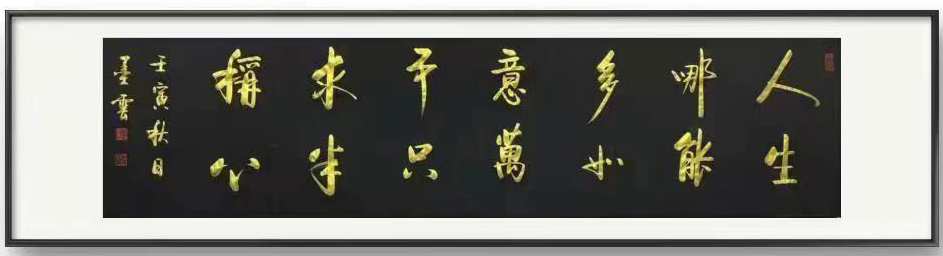 人生
哪能
多如
意萬
事只
求半
稱心
壬寅秋月
墨雲